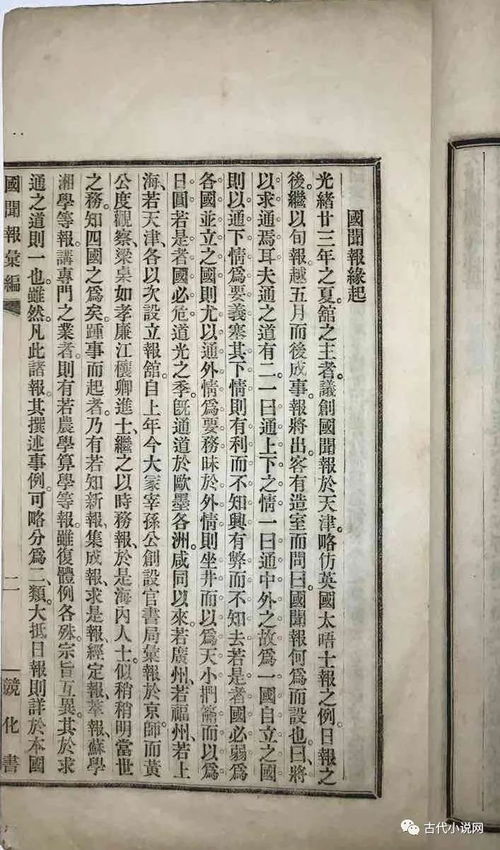 國聞報緣起
光緒廿三年之夏館之主者議創國聞報於天津略仿英國太晤士報之例日報之
後繼以旬報越五月而後成事報將出客有造室而問曰國聞報何為而設也曰將
以求通焉耳夫通之道有二一曰通上下之情一曰通中外之故為一國自立之國
則以通下情為要義塞其下情則有利而不知興有弊而不知去若是者國必弱為
各國並立之國則尤以通外情為要務昧於外情則坐井而以為天小捫籥而以為
日圓若是者國必危道光之季既通道於歐墨各洲咸同以來若廣州若福州若上
海若天津各以次設立報館自上年今大冢宰孫公創設官書局彙報於京師而黃
公度觀察梁卓如孝廉汪穰卿進士繼之以時務報於是海內人士似稍稍明當世
之務知四國之為矣踵事而起者乃有若知新報集成報求是報經定報萃報蘇學
湘學等報講專門之業者則有若農學算學等報雖復體例各殊宗旨互異其於求
通之道則一也雖然凡此諸報其撰述事例可略分為二類大抵日報則詳於本國
國聞報彙編
二
競化書
古代小说网